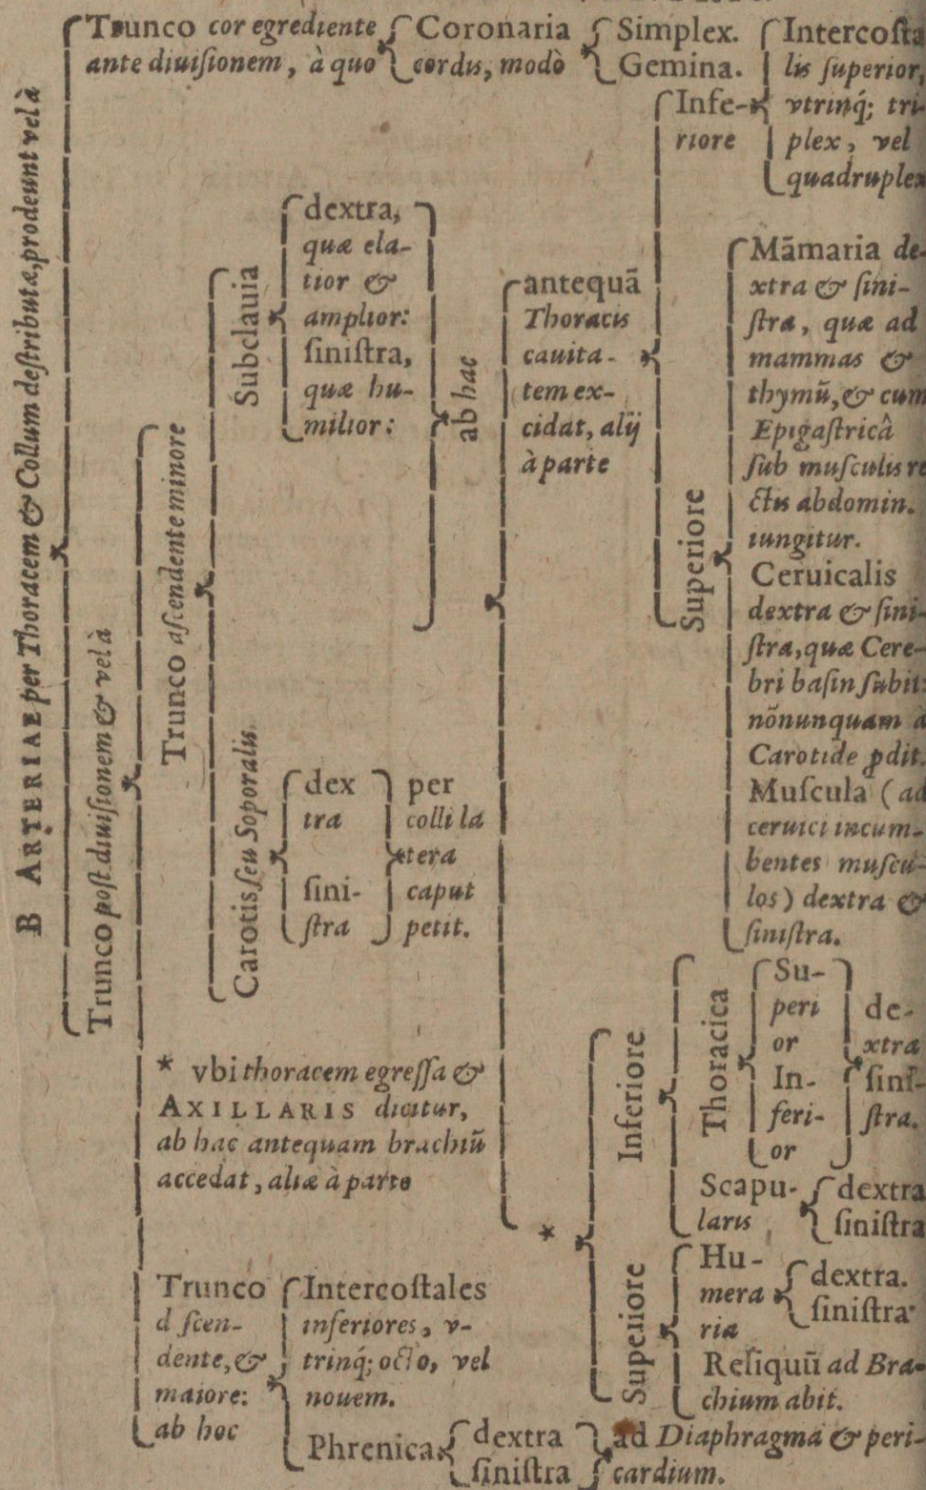 B ARTERIAE per Thoracem & Collum deſtributæ, prodeunt vel à
Trunco cor egrediente
ante diuiſionem, à quo
Coronaria
cordis, modò
Simplex.
Gemina.
Trunco poſt diuiſionem & vel à
Trunco aſcendente minore
Subclauia
dextra,
quæ ela-
tior &
amplior:
ſiniſtra,
quæ hu-
milior:
ab hac
antequã
Thoracis
cauita-
tem ex-
cidat, alij
à parte
Infe-
riore
Intercoſta
lis ſuperior,
vtrinq́; tri-
plex, vel
quadruplex
Superiore
Mãmaria de-
xtra & ſini-
ſtra, quæ ad
mammas &
thymũ, & cum
Epigaſtricâ
ſub muſculis re
ctis abdomin.
iungitur.
Ceruicalis
dextra & ſini-
ſtra, quæ Cere-
bri baſin ſubit:
nõnunquam à
Carotide ꝓdit.
Muſcula (ad
ceruici incum-
bentes muſcu-
los) dextra &
ſiniſtra.
Carotis ſeu Soporalis.
dex
tra
ſini-
ſtra
per
colli la
tera
caput
petit.
* vbi thoracem egreſſa &
AXILLARIS dicitur,
ab hac antequam brachiũ
accedat, aliæ à parte
*
Inferiore
Thoracica
Su-
peri
or
In-
feri-
or
de-
xtra
ſini-
ſtra.
Scapu-
laris
dextra
ſiniſtra
Superiore
Hu-
mera
ria
dextra.
ſiniſtra
Reliquũ ad Bra-
chium abit.
Trunco
d ſcen-
dente, &
maiore:
ab hoc
Intercoſtales
inferiores, v-
trinq́; octo, vel
nouem.
Phrenica
dextra
ſiniſtra
ad Diaphragma & peri-
cardium.